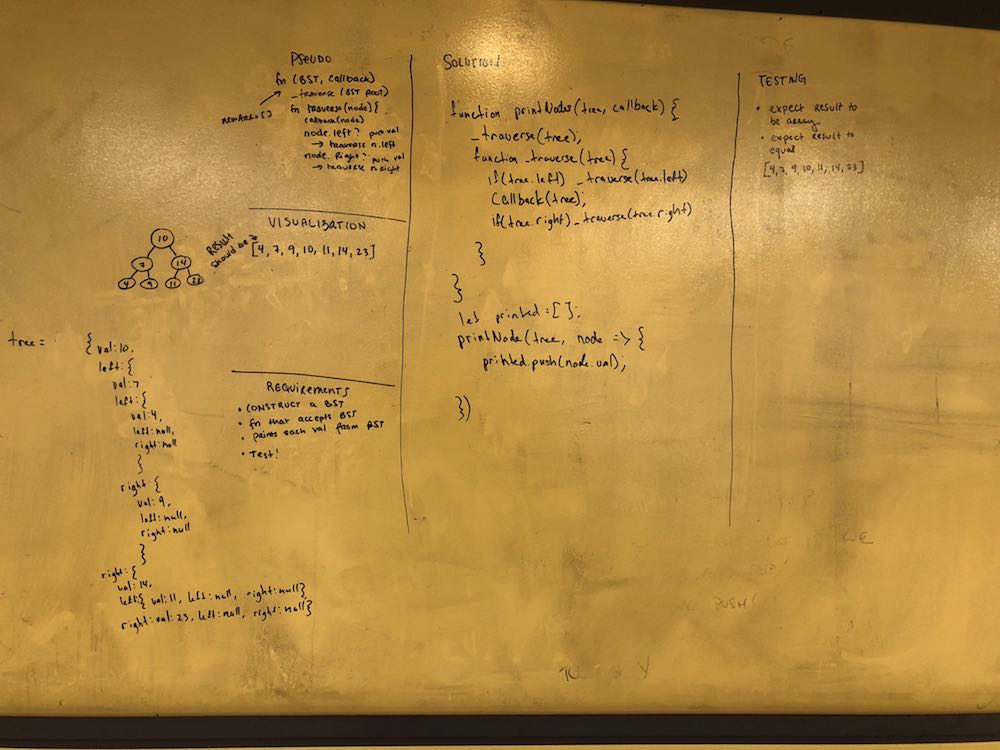 PSEUDO
fn (BST, callback)
_traverse (BST ROOT)
newArr = []
fn traverse(node) {
callback(node)
node.left? push val
→ traverse n.left
node.Right? push val
→ traverse n.right
VISUALIZATION
10
7 14
4 9 11 23
RESULT
should be
[4, 7, 9, 10, 11, 14, 23]
tree = { val: 10,
left: {
val: 7
left: {
val: 4,
left: null,
right: null
}
right: {
val: 9,
left: null,
right: null
}
}
right: {
val: 14,
left: { val: 11, left: null, right: null},
right: val: 23, left: null, right: null}
REQUIREMENTS
• CONSTRUCT a BST
• fn that accepts BST
• prints each val from BST
• Test!
SOLUTION
function printNodes(tree, callback) {
_traverse(tree);
function _traverse(tree) {
if(tree.left) _traverse(tree.left)
Callback(tree);
if(tree.right) _traverse(tree.right)
}
}
let printed = [];
printNode(tree, node => {
printed.push(node.val);
})
TESTING
• expect RESULT to
be array
• expect RESULT to
equal
[4, 7, 9, 10, 11, 14, 23]